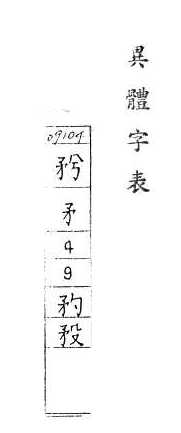 異體字表
09104
矜
矛
4
9